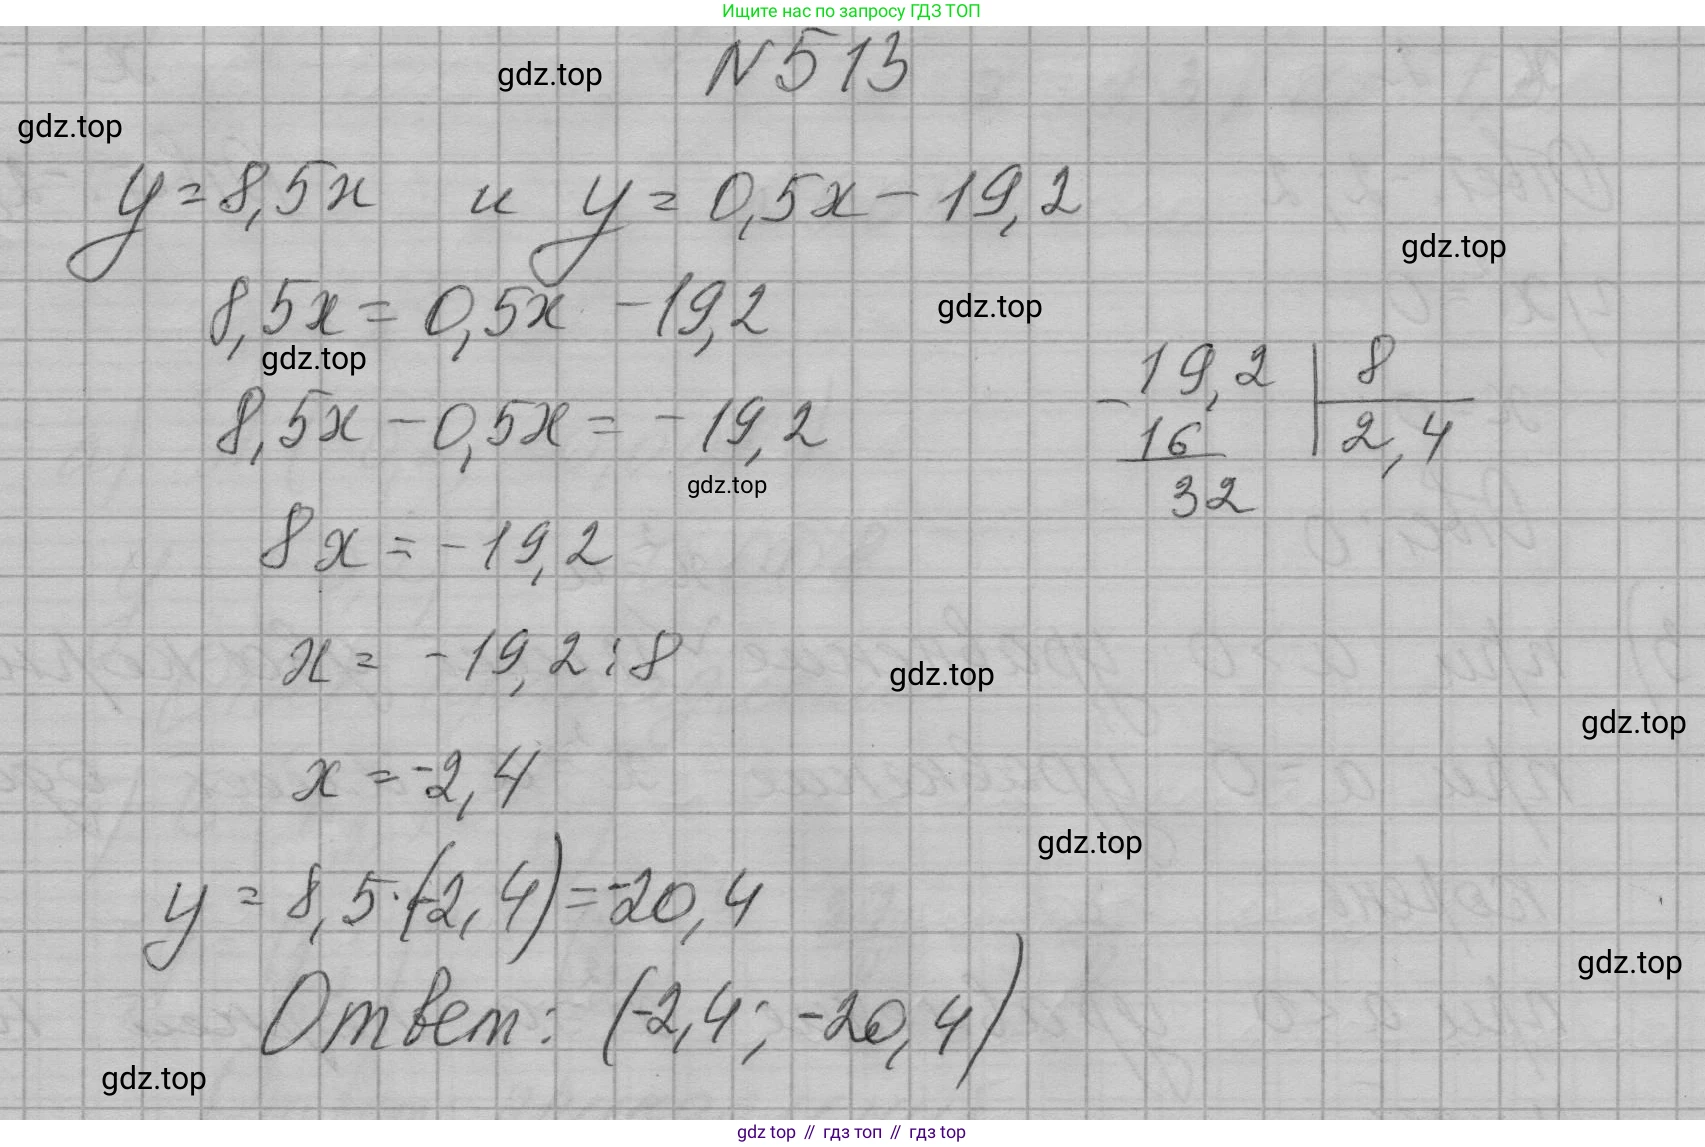 Ищите нас по запросу ГДЗ ТОП
N 513
gdz.top
gdz.top
y = 8,5x и y = 0,5x - 19,2
gdz.top
8,5x = 0,5x - 19,2
gdz.top
gdz.top
8,5x - 0,5x = - 19,2
gdz.top
8x = - 19,2
x = - 19,2 : 8
gdz.top
gdz.top
x = -2,4
gdz.top
y = 8,5 · (-2,4) = -20,4
gdz.top
Ответ: (-2,4; -20,4)
gdz.top
19,2 | 8
- 16 2,4
32
gdz.top // гдз топ // gdz.top